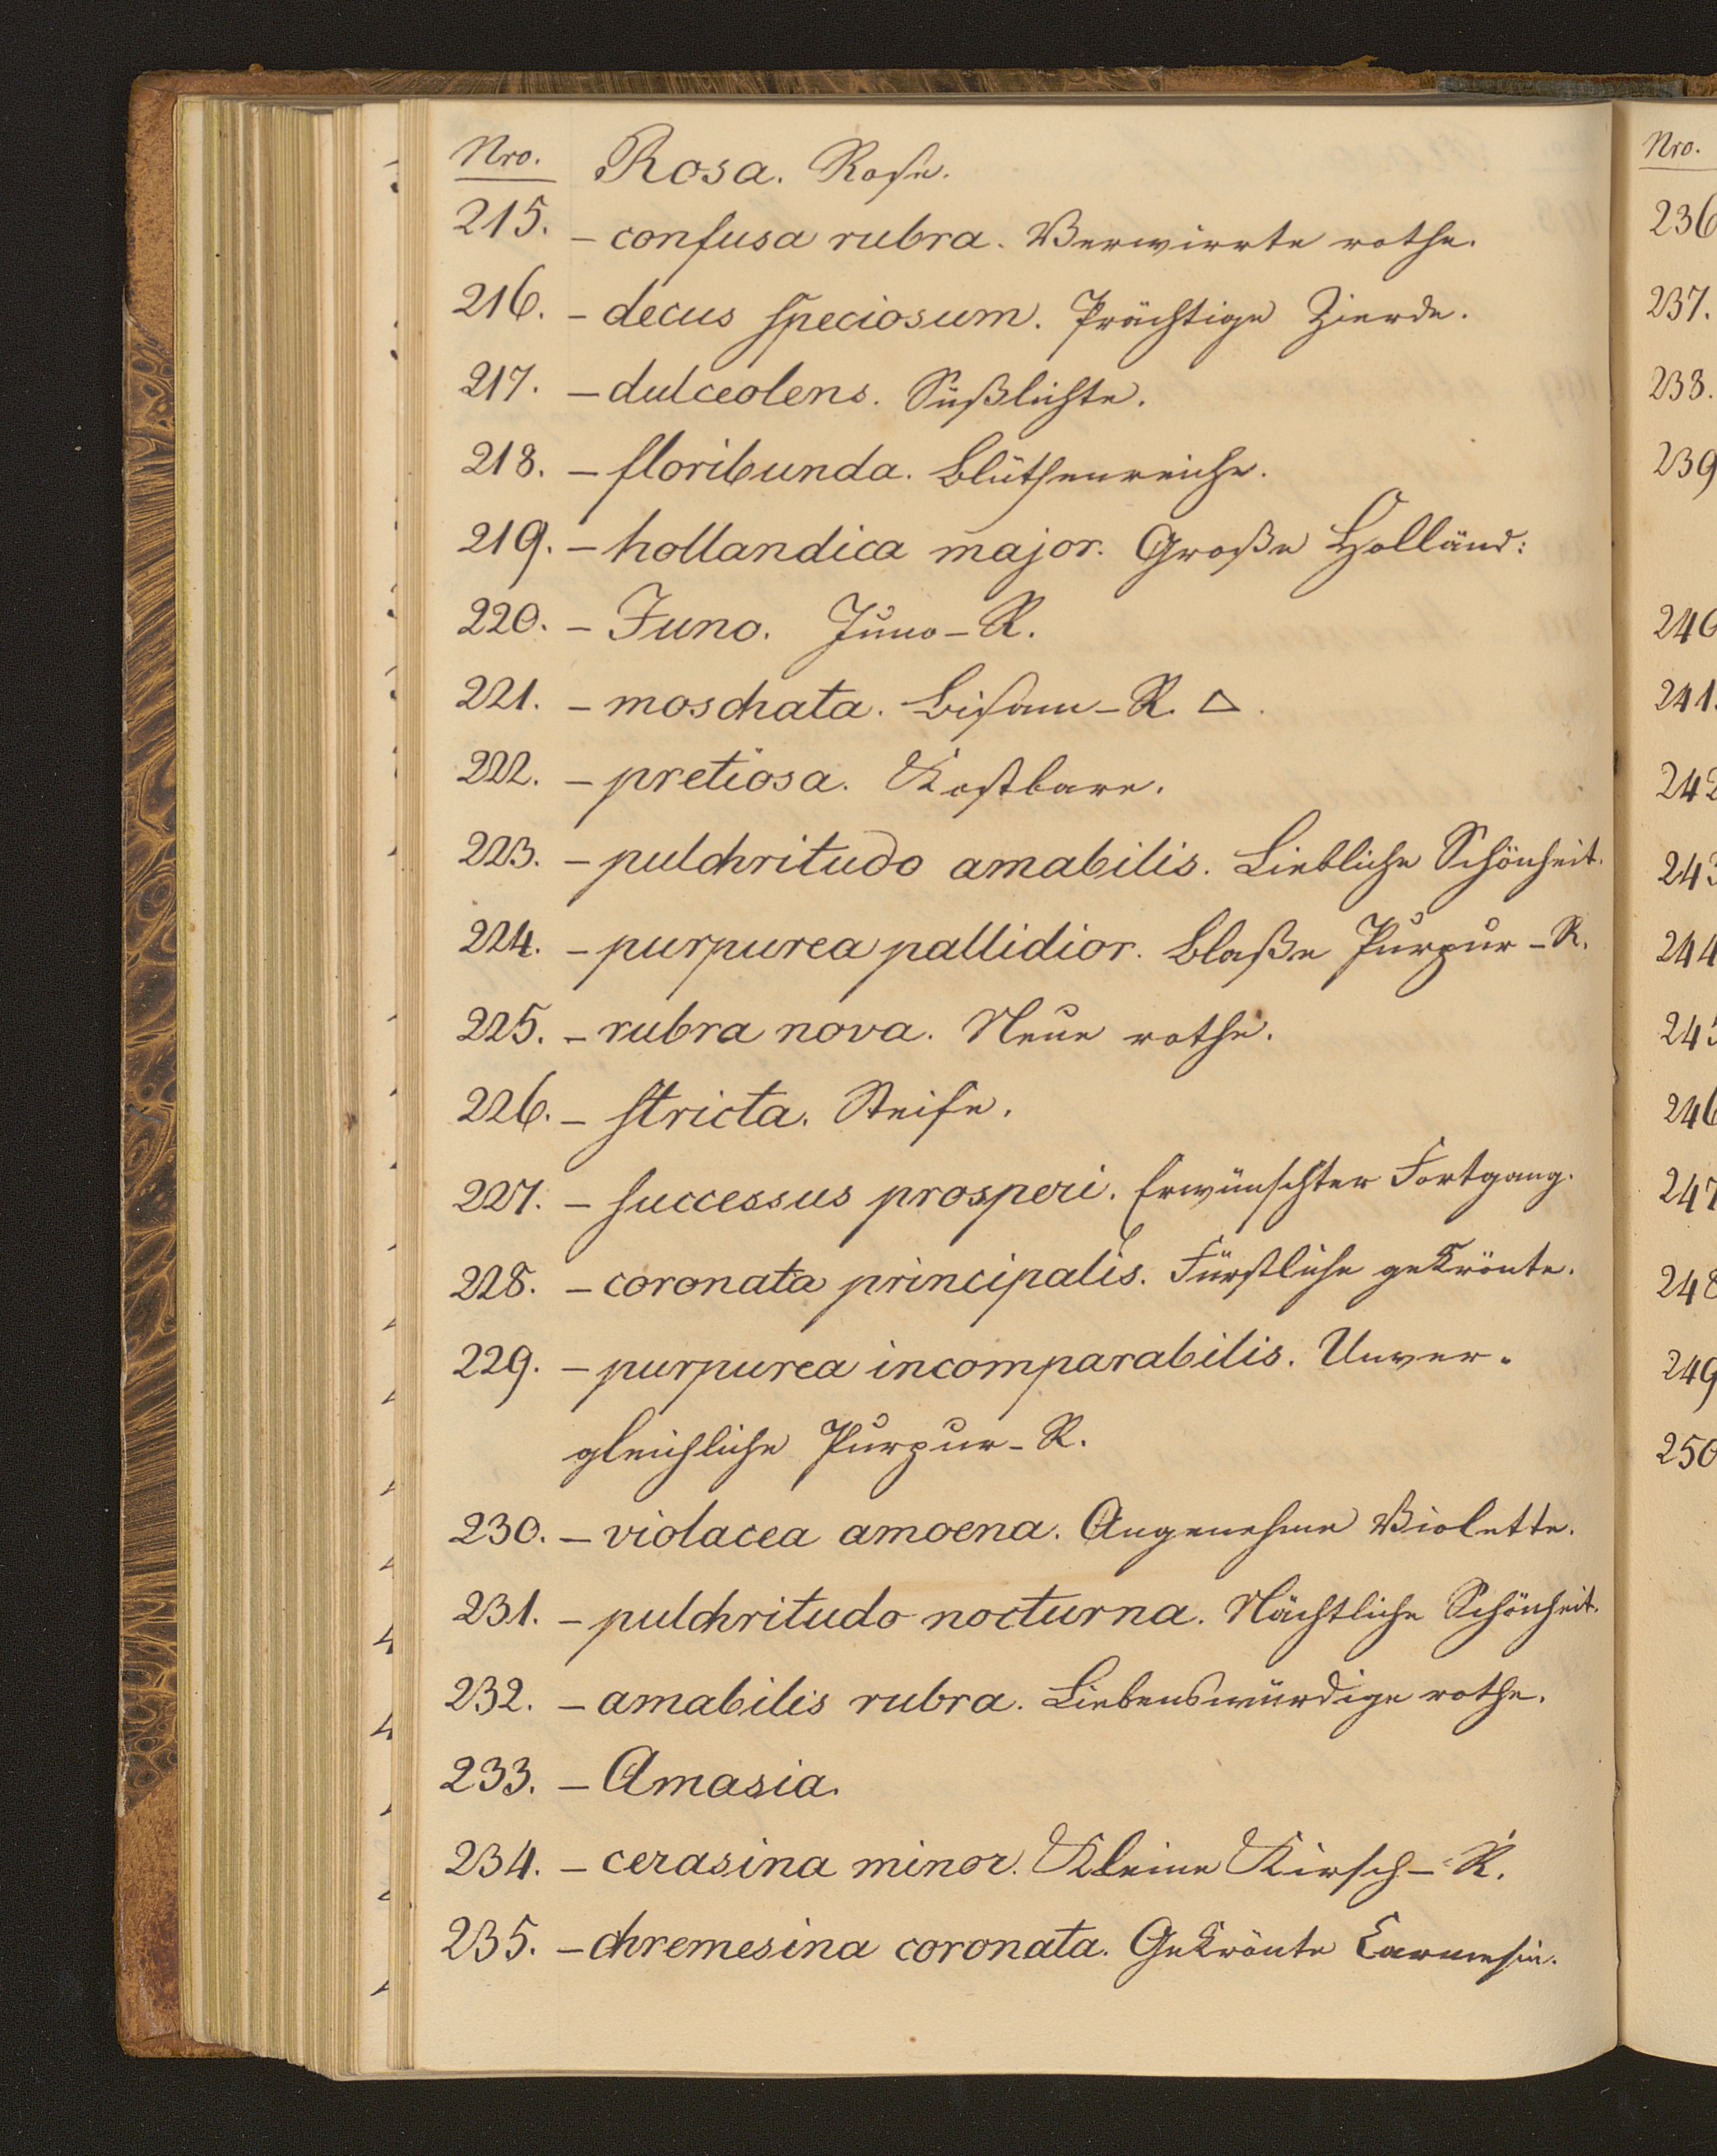 Nro. Rosa. Rose.
215. – confusa rubra. Verwirrte rothe.
216. – decus speciosum. Prächtige Zierde.
217. – dulceolens. Süßlichte.
218. – floribunda. Blüthenreiche.
219. – hollandica major. Große Holländ:
220. – Juno. Juno-R.
221. – moschata. Bisam-R. △.
222. – pretiosa. Kostbare.
223. – pulchritudo amabilis. Liebliche Schönheit.
224. – purpurea pallidior. Blaße Purpur-R.
225. – rubra nova. Neue rothe.
226. – stricta. Steife.
227. – successus prosperi. Erwünschter Fortgang.
228. – coronata principalis. Fürstliche gekrönte.
229. – purpurea incomparabilis. Unver-
gleichliche Purpur-R.
230. – violacea amoena. Angenehme Violette.
231. – pulchritudo nocturna. Nächtliche Schönheit.
232. – amabilis rubra. Liebenswürdige rothe.
233. – Amasia.
234. – cerasina minor. Kleine Kirsch-R.
235. – chremesina coronata. Gekrönte Carmesin.
Nro.
236
237.
238.
239
240
241.
242
243
244
245
246
247
248
249
250